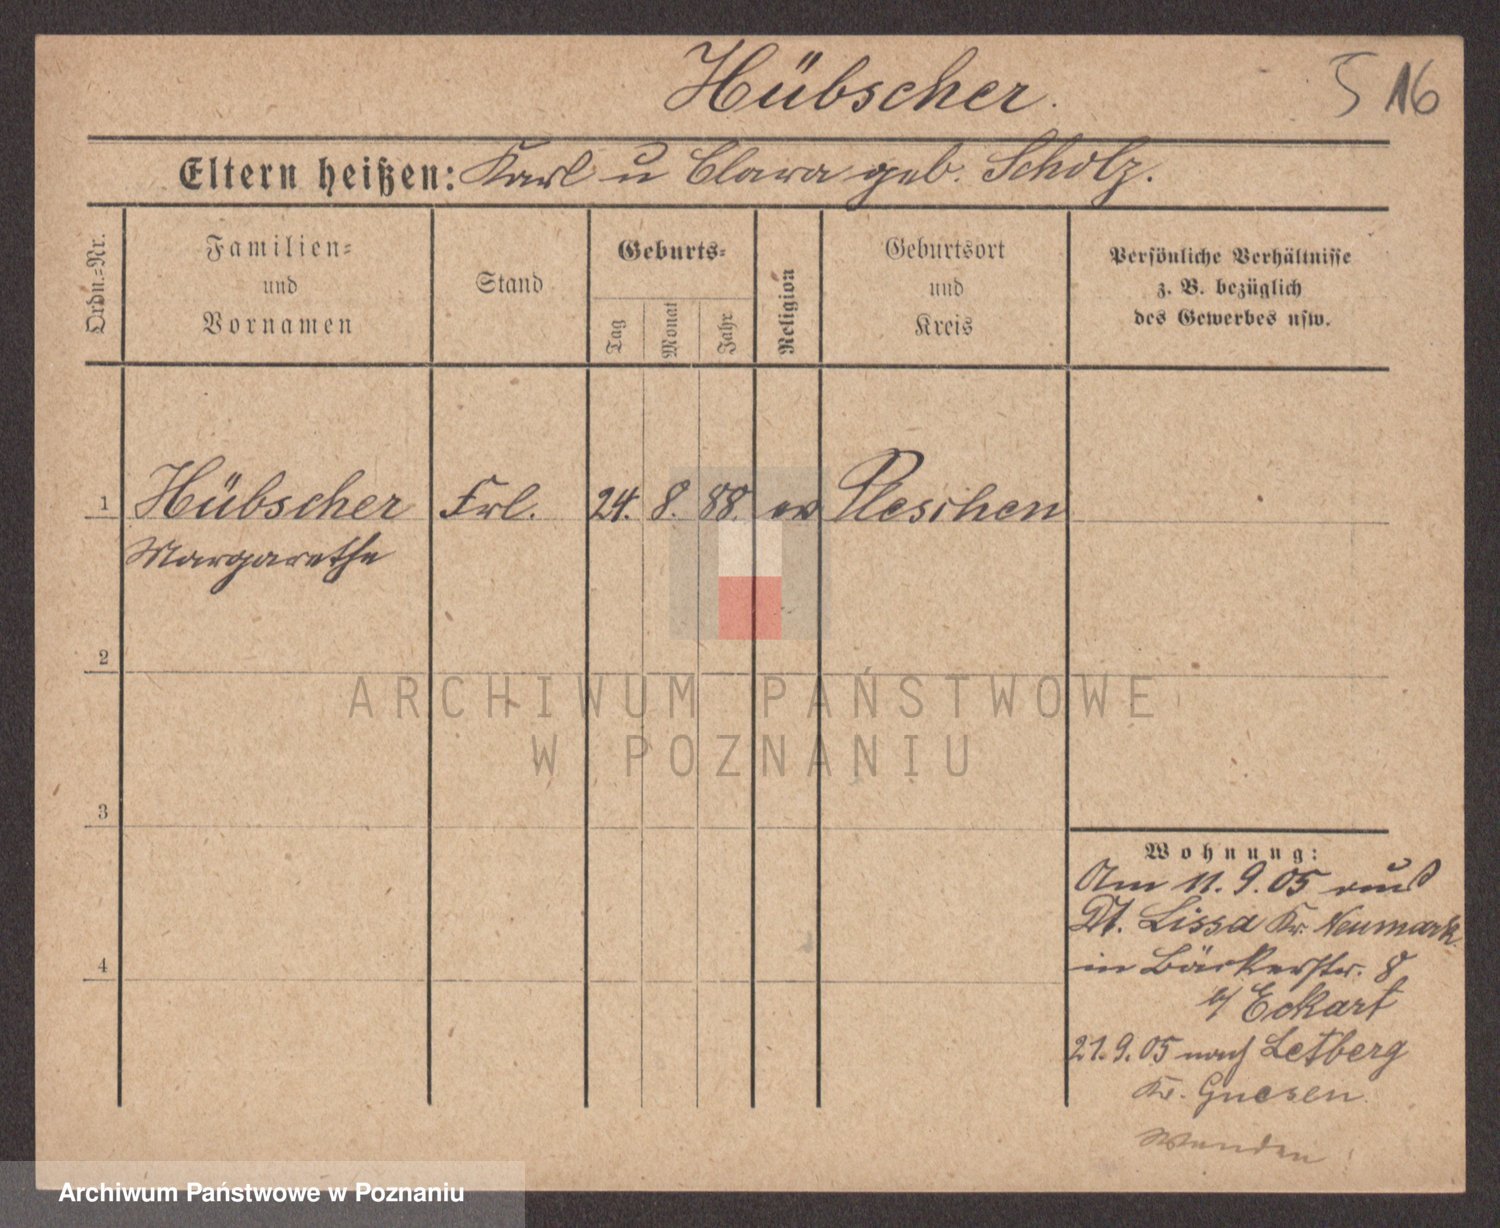 Hübscher.
5 16
Eltern heißen: Karl u Clara geb. Scholz.
Ordn.=Nr.
Familien=
und
Vornamen
Stand
Geburts=
Tag
Monat
Jahr
Religion
Geburtsort
und
Kreis
Persönliche Verhältnisse
z. B. bezüglich
des Gewerbes usw.
1 Hübscher Frl. 24. 8. 88. ev Pleschen
Margarethe
2
3
4
Wohnung:
Am 11. 9. 05 aus
Dt. Lissa Kr. Neumark
in Bäckerstr. 8
b/ Eckart
21. 9. 05 nach Letberg
Kr. Gnesen.
Wenden!
ARCHIWUM PAŃSTWOWE
W POZNANIU
Archiwum Państwowe w Poznaniu